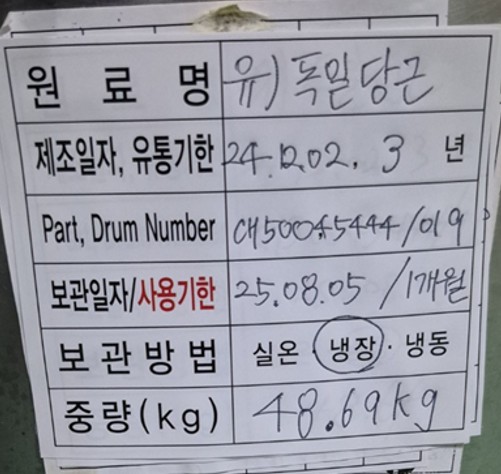 원 료 명 유) 독일당근
제조일자, 유통기한 24.12.02. 3 년
Part, Drum Number 대50045444/019
보관일자/사용기한 25.08.05 / 1개월
보 관 방 법 실온 · 냉장 · 냉동
중량(kg) 48.69kg